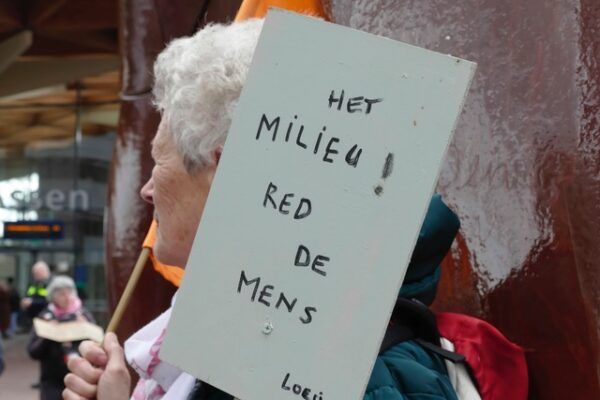 HET
MILIEU!
RED
DE
MENS
Assen